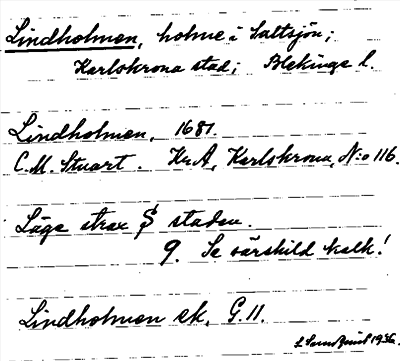 Lindholmen, holme i Saltsjön;
Karlskrona stad; Blekinge l.
Lindholmen, 1681.
C.M. Stuart. Kr.A, Karlskrona, N:o 116.
Läge strax S staden.
9. Se särskild kalk!
Lindholmen ek. G.11.
1936.